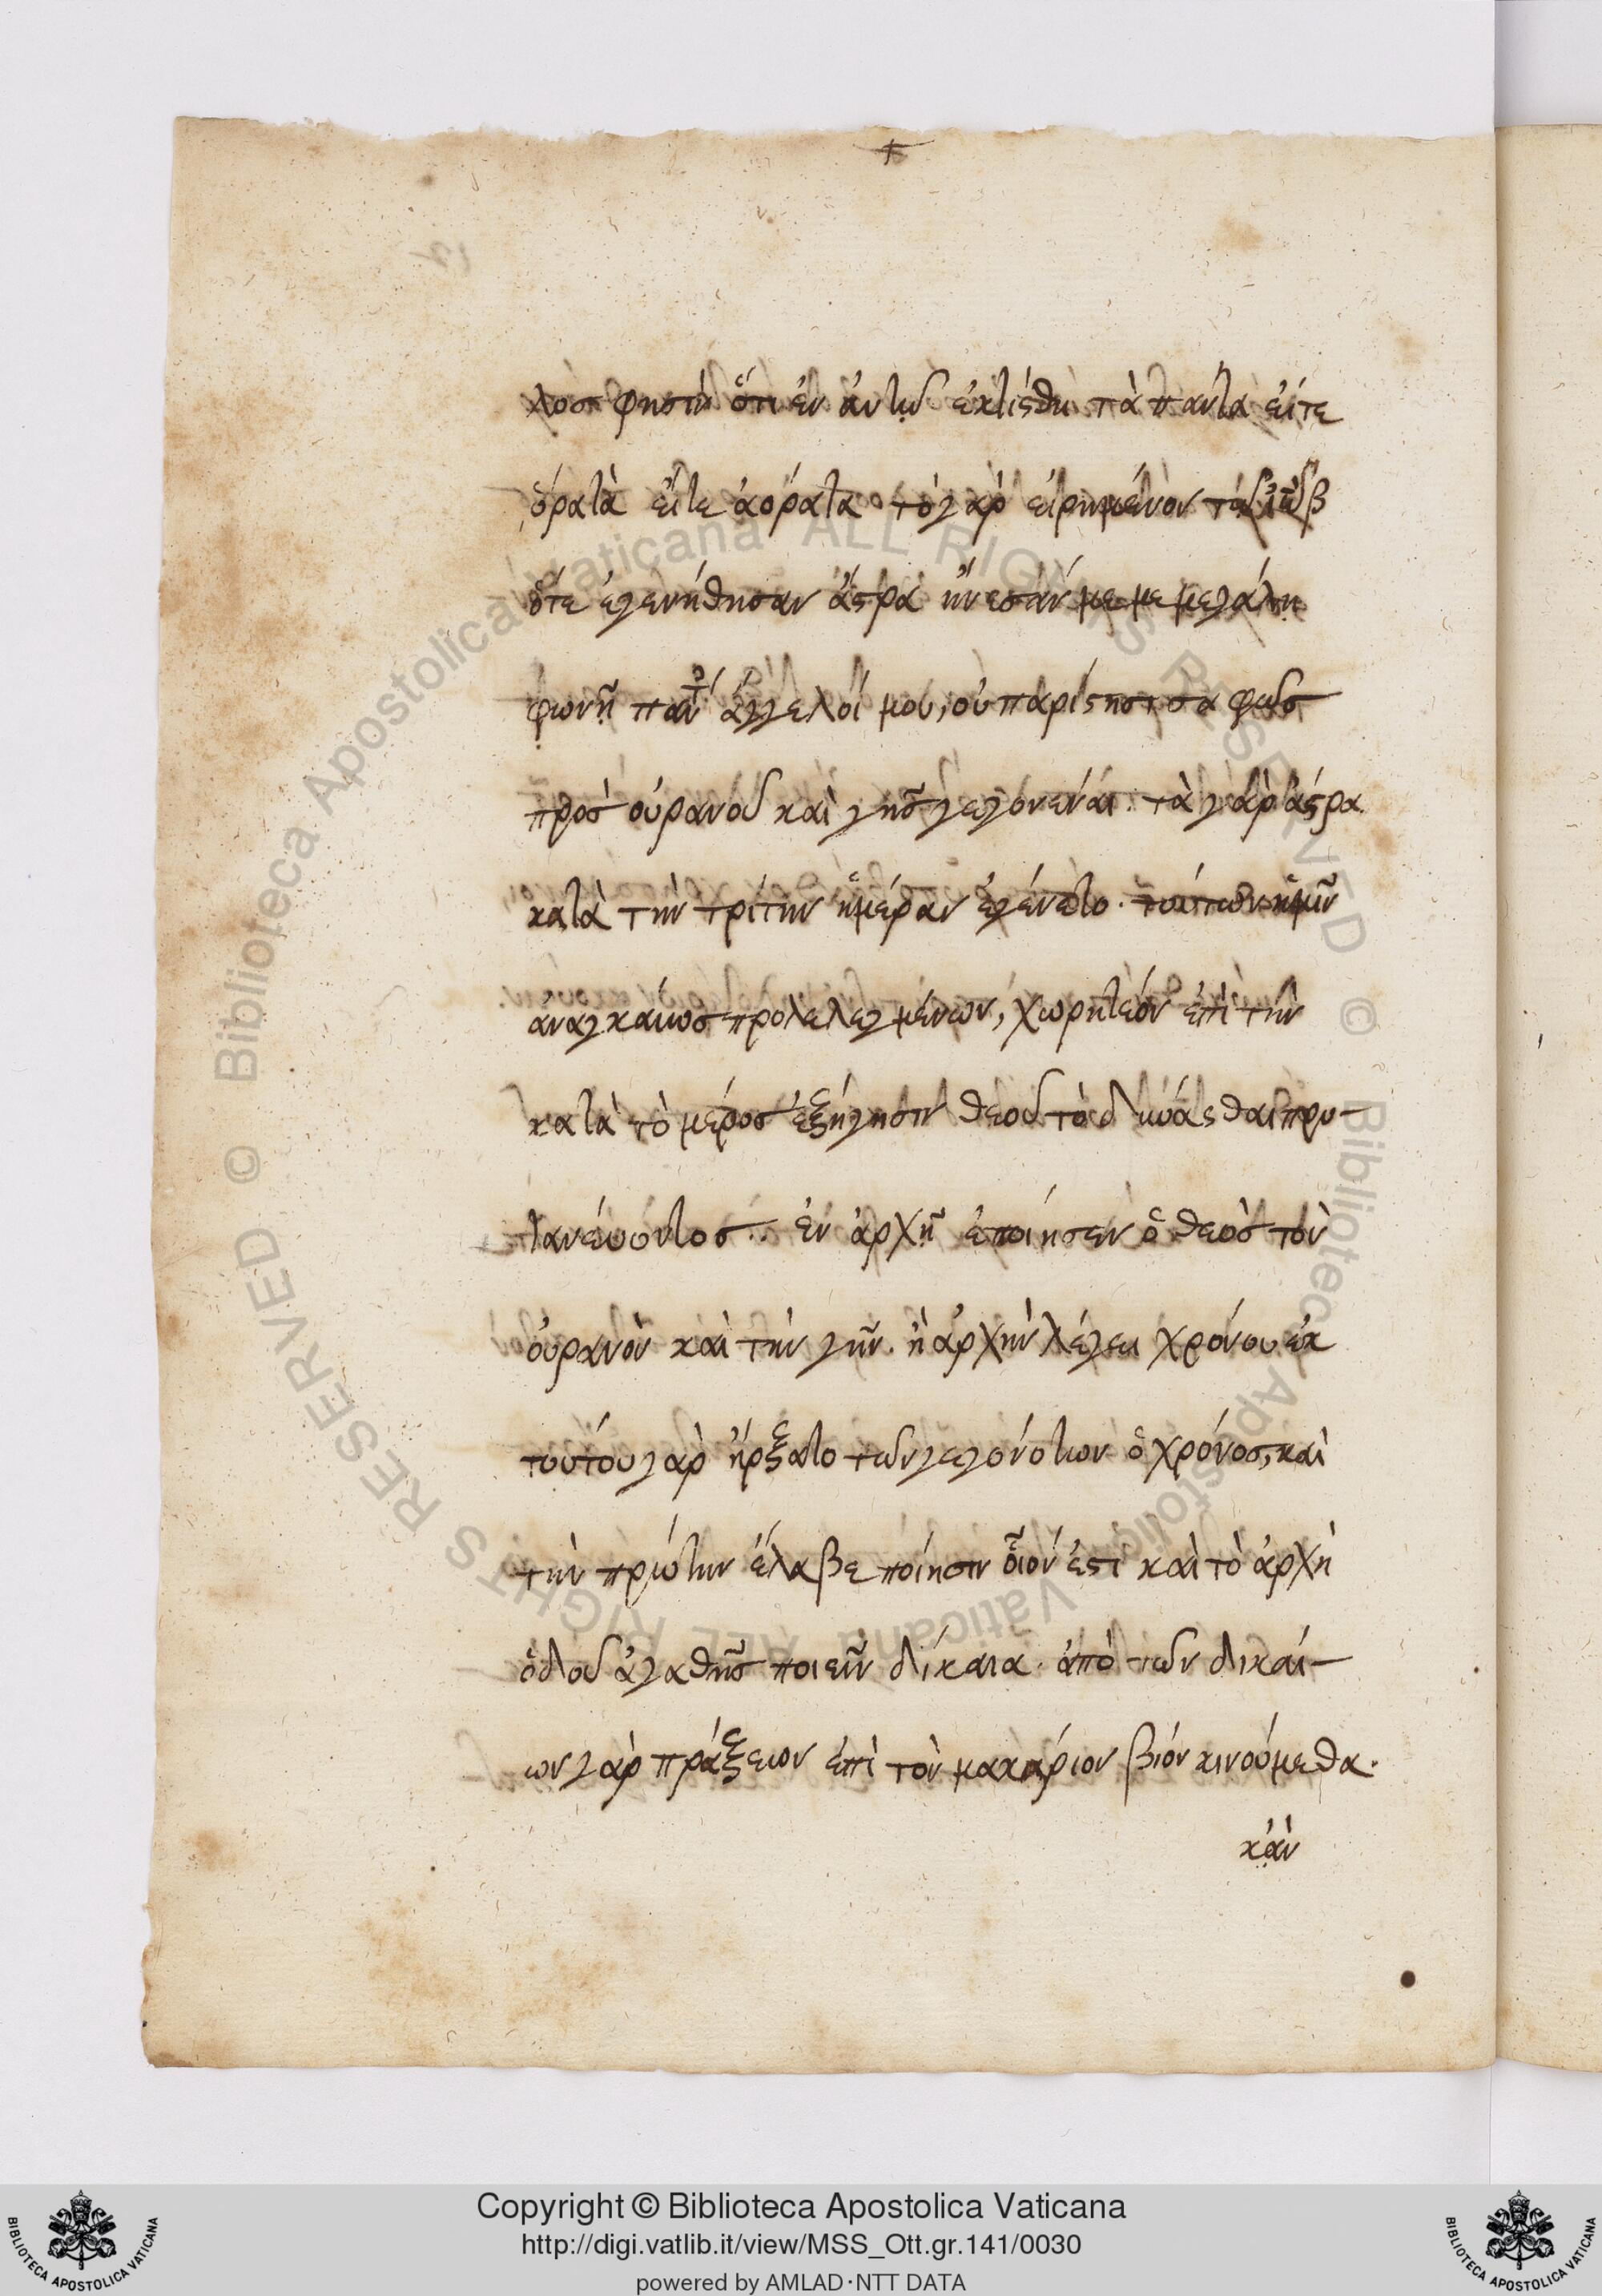 λος φησὶν ὅτι ἐν ἀυτῷ ἐκτίσθη τὰ πάντα εἴτε
ὁρατὰ εἴτε ἀόρατα τὸ γὰρ εἰρημένον τῷ ἰὼβ
ὅτε ἐγενήθησαν ἄστρα ἤνεσάν με με μεγάλη
φωνῇ πάντ ἄγγελοί μου, οὐ παρίστησι σαφῶς
πρὸς οὐρανοῦ καὶ γῆς γεγονέναι. τὰ γὰρ ἄστρα
κατὰ τὴν τρίτην ἡμέραν ἐγένετο. τούτων ἡμῖν
ἀναγκαίως προλελεγμένων, χωρητέον ἐπὶ τὴν
κατὰ τὸ μέρος ἐξήγησιν θεοῦ τὸ δύνασθαι πρυ-
τανεύοντος.. ἐν ἀρχῇ ἐποίησεν ὁ θεὸς τὸν
οὐρανὸν καὶ τὴν γῆν. ἢ ἀρχὴν λέγει χρόνου ἐκ
τούτου γὰρ ἤρξατο τῶν γεγονότων ὁ χρόνος, καὶ
τὴν πρώτην ἔλαβε ποίησιν οἷον ἐστι καὶ τὸ ἀρχὴ
ὁδοῦ ἀγαθῆς ποιεῖν δίκαια. ἀπὸ τῶν δικαί-
ων γὰρ πράξεων ἐπὶ τὸν μακάριον βίον κινούμεθα.
κἂν
Copyright © Biblioteca Apostolica Vaticana
http://digi.vatlib.it/view/MSS_Ott.gr.141/0030
powered by AMLAD·NTT DATA
BIBLIOTECA APOSTOLICA VATICANA
BIBLIOTECA APOSTOLICA VATICANA
© Biblioteca Apostolica Vaticana ALL RIGHTS RESERVED
© Biblioteca Apostolica Vaticana ALL RIGHTS RESERVED